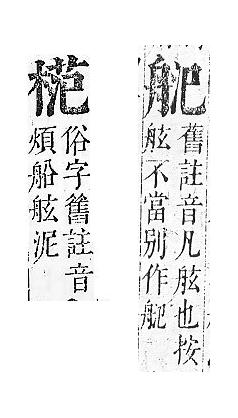 舥
舊註音凡舷也按
舷不當別作舥
俗字舊註音
煩船舷泥